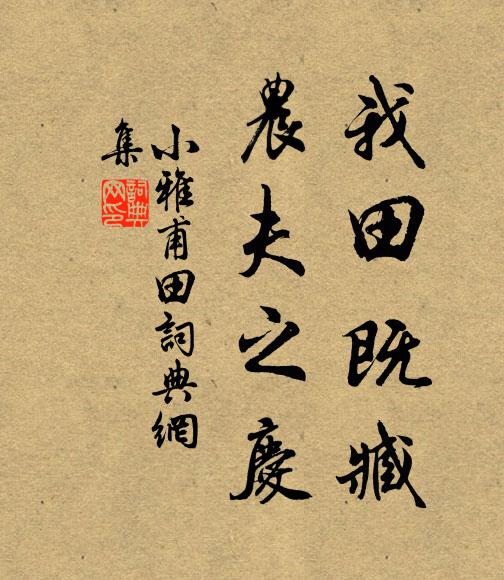 我田既臧
農夫之慶
小雅甫田詞典網
集
詞典
网印